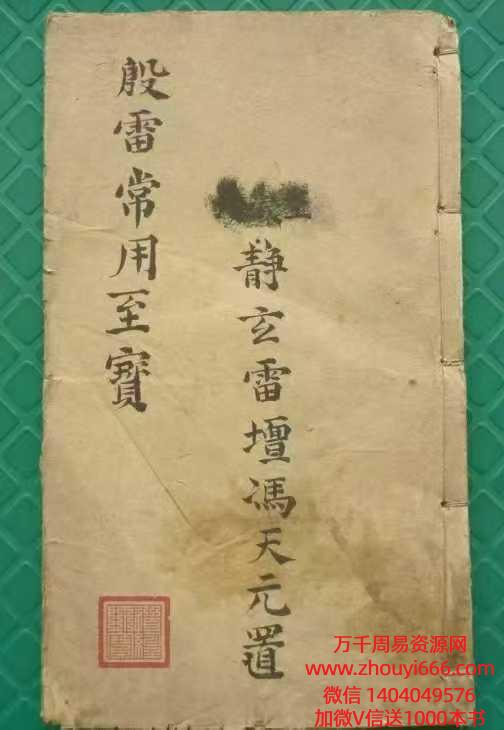 靜玄雷壇馮天元置
殷雷常用至寶
万千周易资源网
www.zhouyi666.com
微信 1404049576
加微V信送1000本书